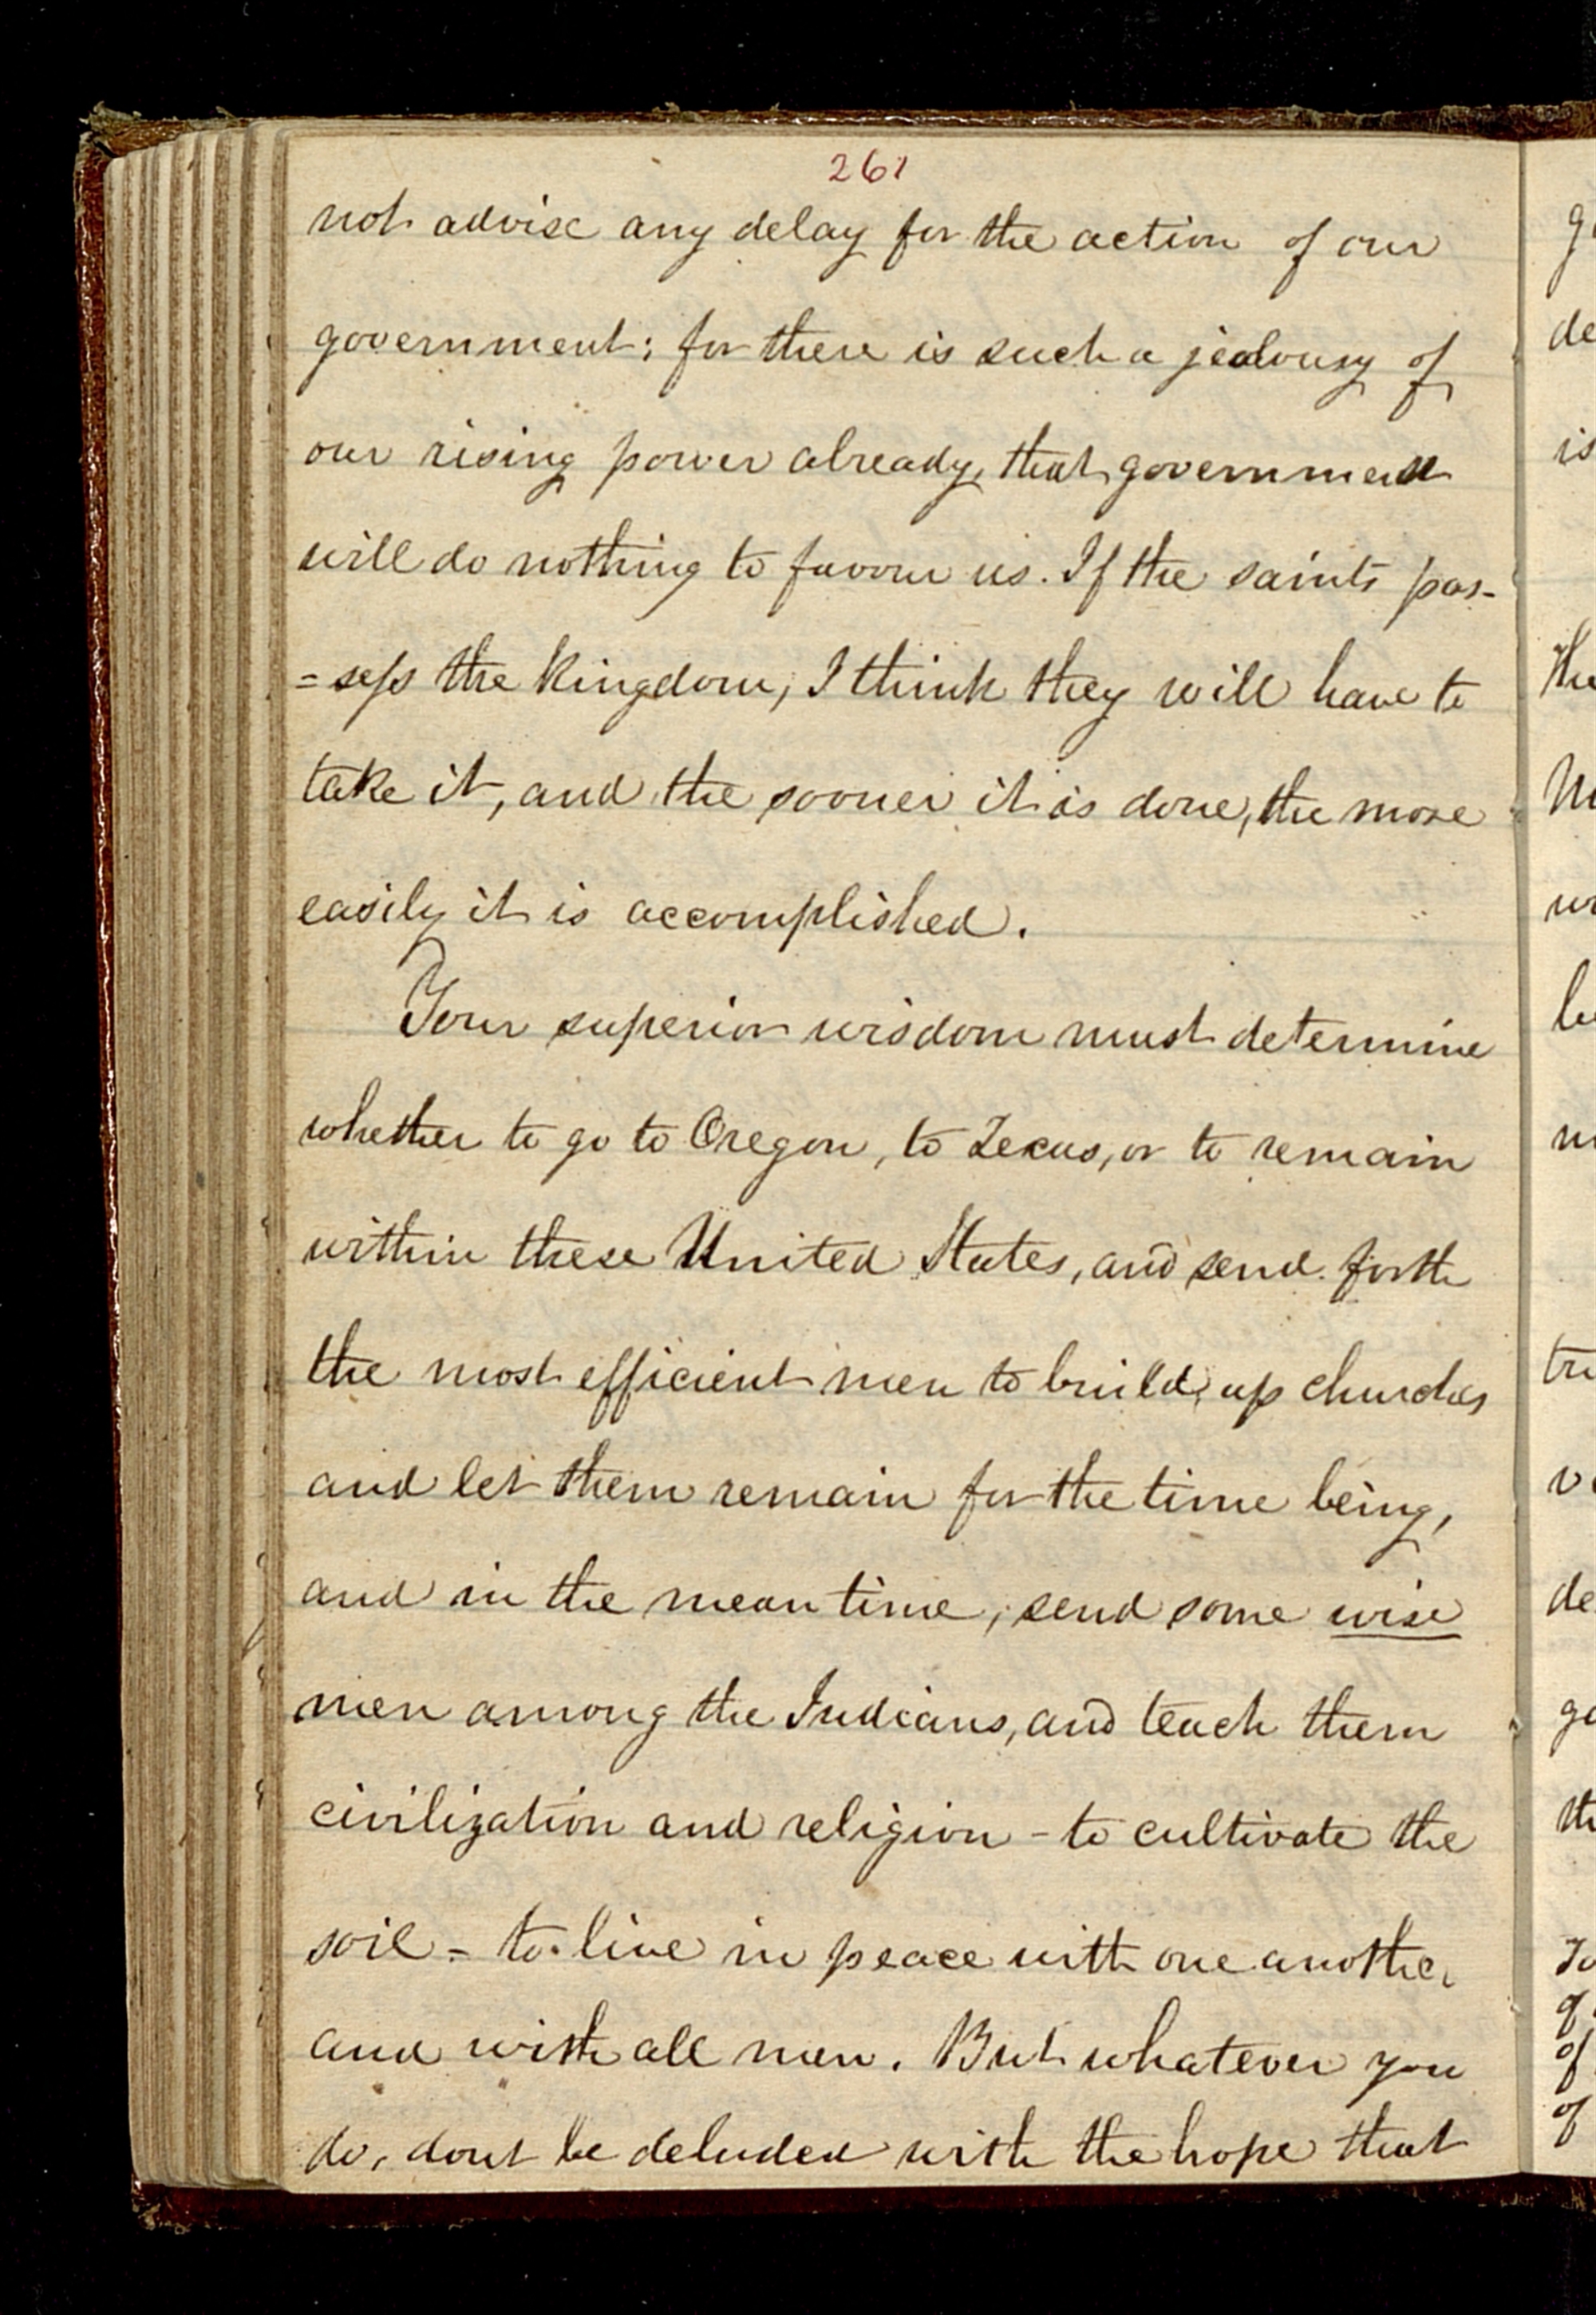 261
not advise any delay for the action of our
government; for there is such a jealousy of
our rising power already, that government
will do nothing to favour us. If the saints pos-
=sess the kingdom, I think they will have to
take it, and the sooner it is done, the more
easily it is accomplished.
Your superior wisdom must determine
whether to go to Oregon, to Texas, or to remain
within these United States, and send forth
the most efficient men to build up churches
and let them remain for the time being,
and in the mean time, send some wise
men among the Indians, and teach them
civilization and religion - to cultivate the
soil - to live in peace with one another
and with all men. But whatever you
do, dont be deluded with the hope that